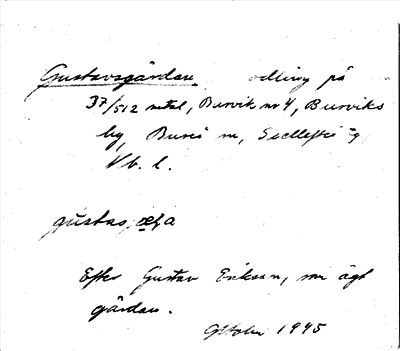 Gustavsgärdan odling på
37/512 mtal, Burvik nr 4, Burviks
by, Bureå sn, Skellefteå
Vb. l.
gustas,
Efter Gustav Erikson, som ägt
gärdan.
1945